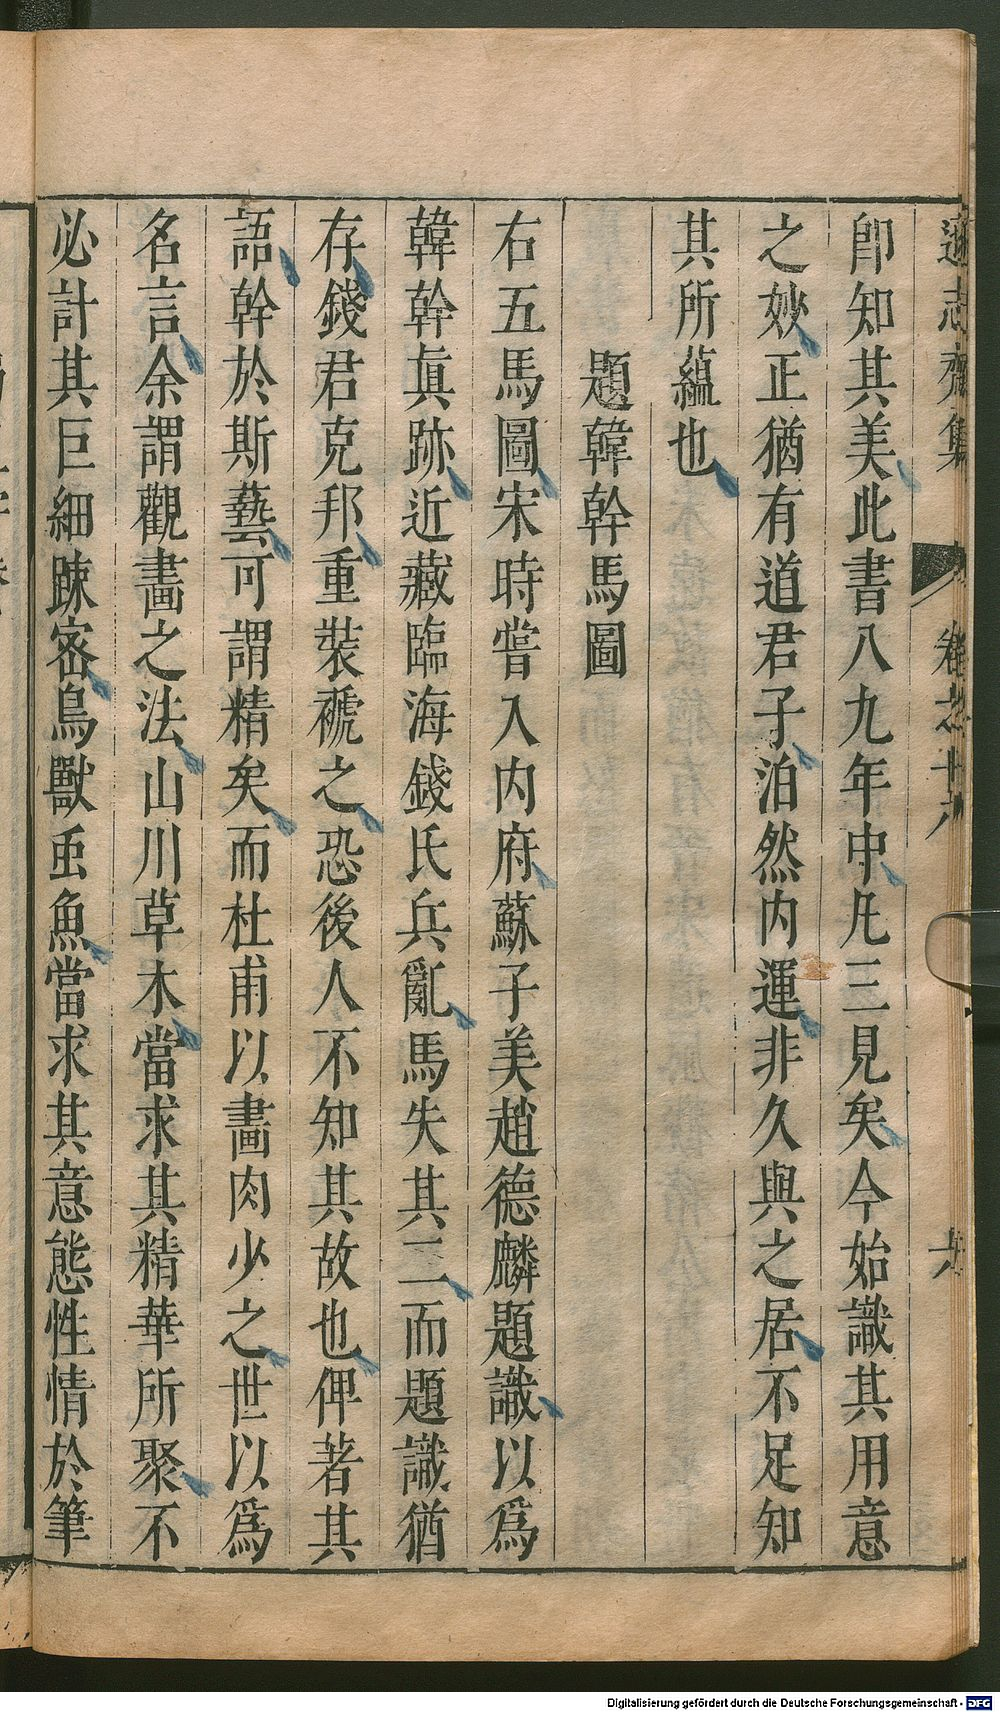 遜志齋集　卷之十八　
卽知其美此書八九年中凡三見矣今始識其用意
之妙正猶有道君子泊然内運非久與之居不足知
其所蘊也
題韓幹馬圖
右五馬圖宋時嘗入内府蘇子美趙德麟題識以爲
韓幹眞跡近藏臨海錢氏兵亂馬失其二而題識猶
存錢君克邦重裝褫之恐後人不知其故也俾著其
語幹於斯藝可謂精矣而杜甫以畫肉少之世以爲
名言余謂觀畫之法山川草木當求其精華所聚不
必計其巨細踈密鳥獸虫魚當求其意態性情於筆
Digitalisierung gefördert durch die Deutsche Forschungsgemeinschaft - DFG